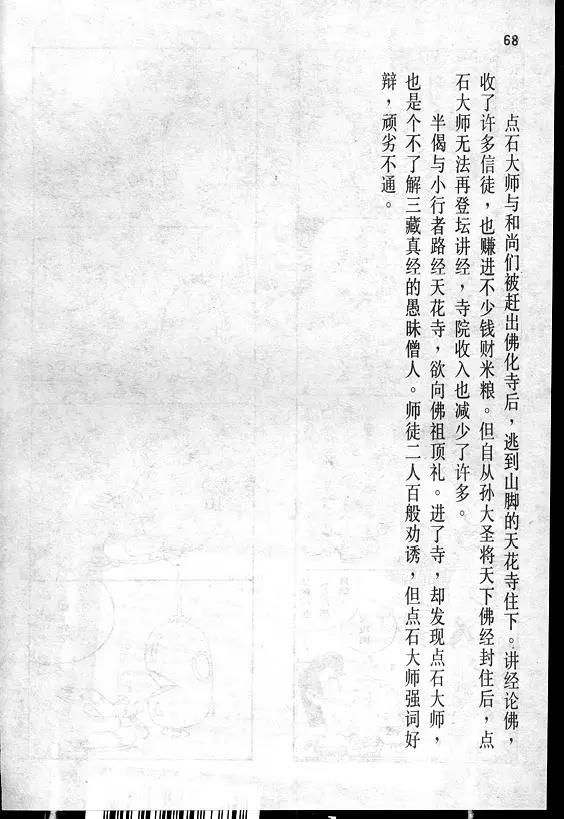 68
点石大师与和尚们被赶出佛化寺后，逃到山脚的天花寺住下。讲经论佛，
收了许多信徒，也赚进不少钱财米粮。但自从孙大圣将天下佛经封住后，点
石大师无法再登坛讲经，寺院收入也减少了许多。
半偈与小行者路经天花寺，欲向佛祖顶礼。进了寺，却发现点石大师，
也是个不了解三藏真经的愚昧僧人。师徒二人百般劝诱，但点石大师强词好
辩，顽劣不通。